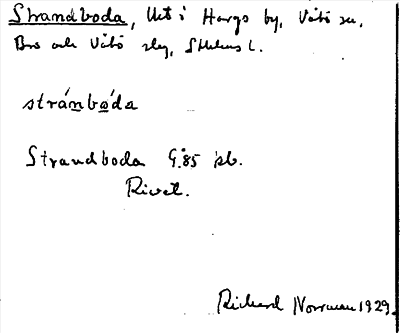 Strandboda, Utt i Hargs by, Vätö sn,
Bro och Vätö slg, Sthlms L.
stránbo̱da
Strandboda G.85 kb.
Rivet.
Richard Norrman 1929.